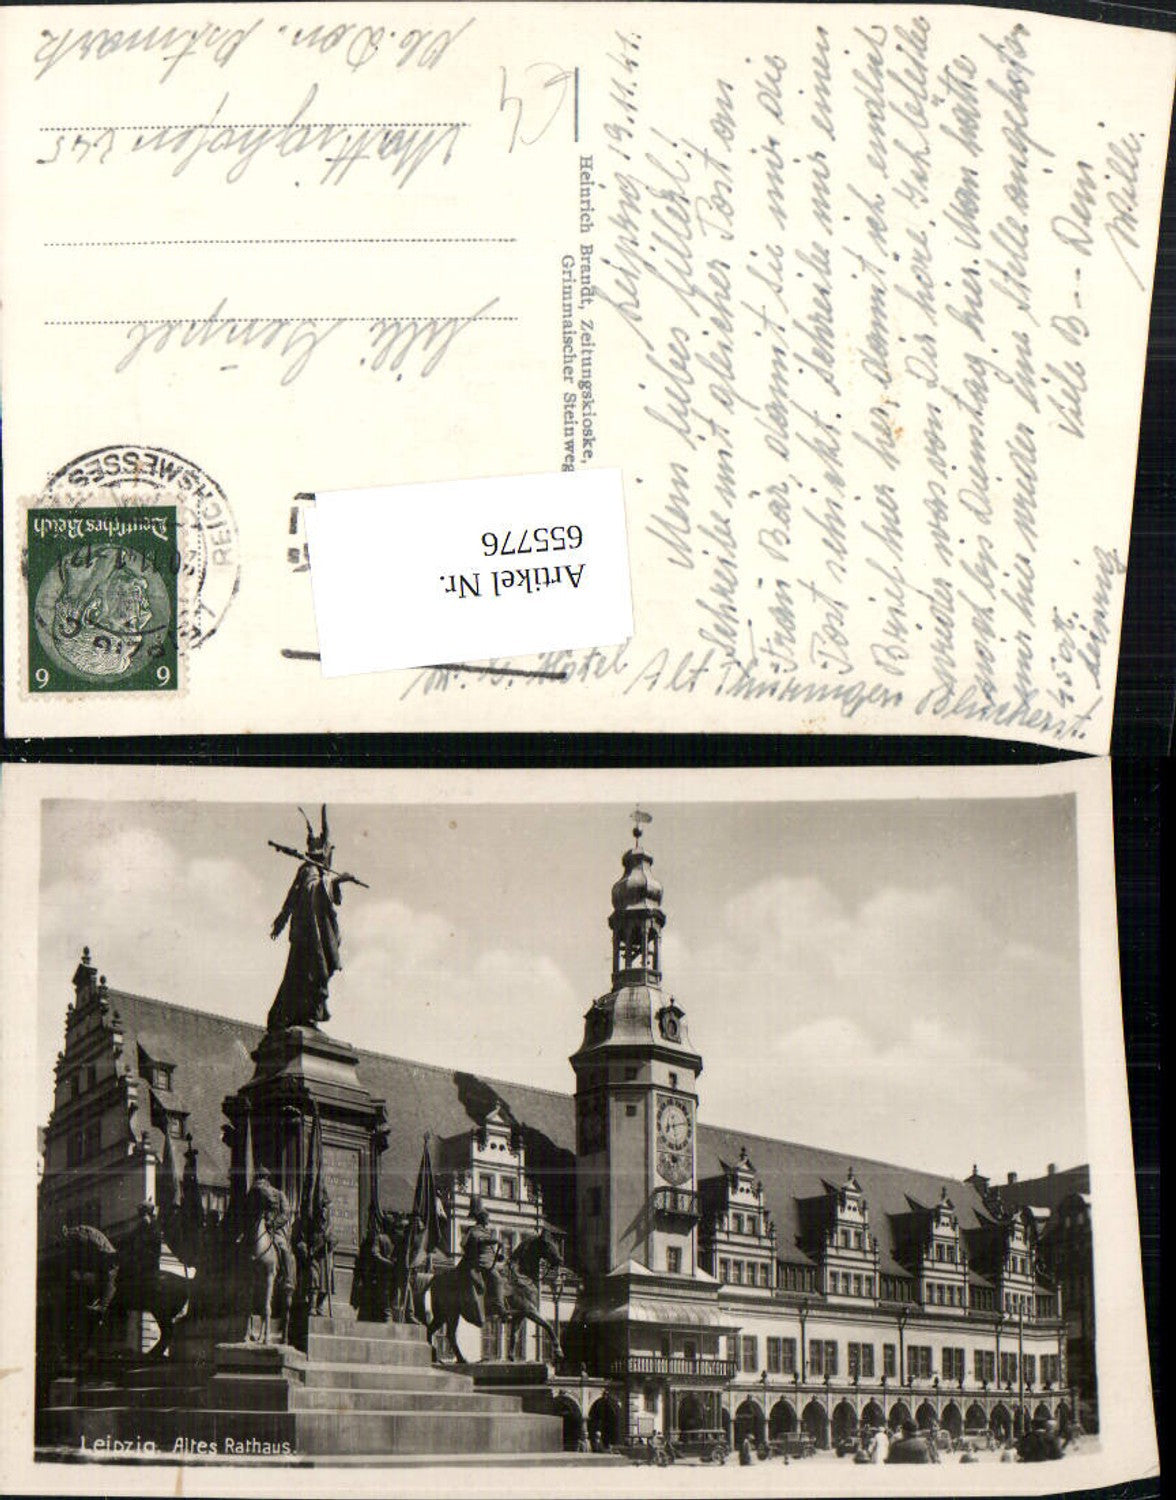 Leipzig 19.11.41.
Mein liebes Lillerl!
Schreibe mit gleicher Post an
Frau Bär damit sie mir die
Post schickt. Schreibe mir einen
Brief hier her damit ich endlich
wieder was von Dir höre. Ich bleibe
noch bis Dienstag hier. Man hätte
mir hier wieder eine Stelle angeboten
45 Viele B--- Dein
Willi.
Hotel Alt Thüringen Blücherst.
Lilli
Mattighofen 245
Ob. Don. Ostmark
Heinrich Brandt, Zeitungskioske,
Grimmaischer Steinweg
REICHSMESSES
LEIPZIG
Deutsches Reich
6 6
Artikel Nr.
655776
Leipzig. Altes Rathaus.